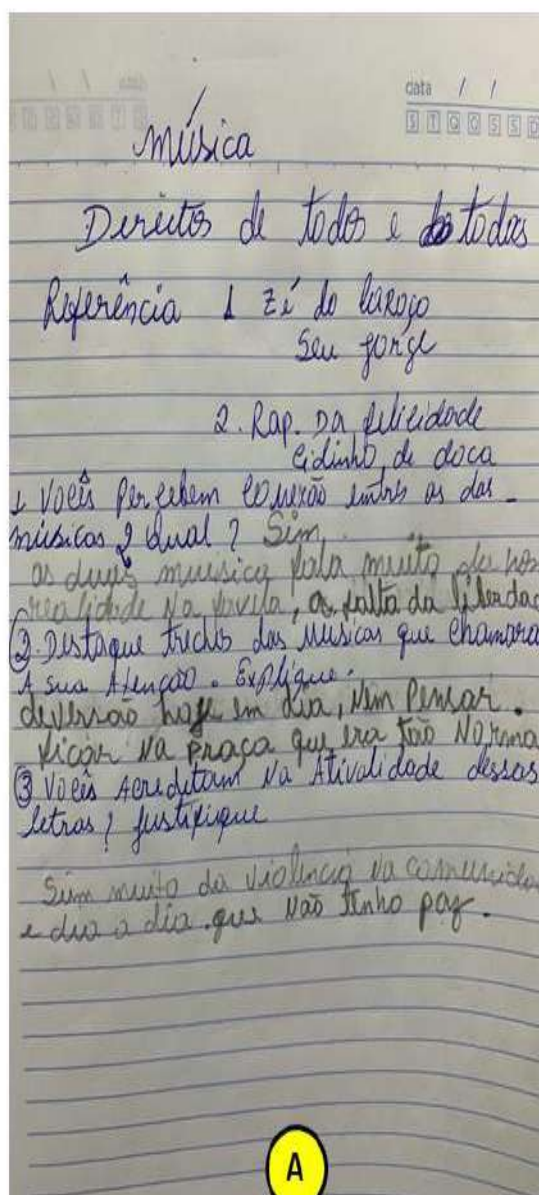 data / /
S T Q Q S S D
música
Direitos de todos e todas
Referência 1 Zé do Caroço
Seu Jorge
2. Rap. Da felicidade
Cidinho de doca
1 Vocês Percebem Conexão entres as das
músicas 2 dual? Sim,
as duas musica fala muito da nos
realidade Na favela, a falta da liberdad
2. Destaque trechos das Musicas que Chamara
A sua Atenção. Explique.
deversão hoje em dia, Nem Pensar.
ficar Na praça que era tão Norma
3 Vocês Acreditam Na Ativalidade dessas
letras? Justifique
Sim muito da violencia Na comunida
e dia a dia. que Não tenho paz.
A